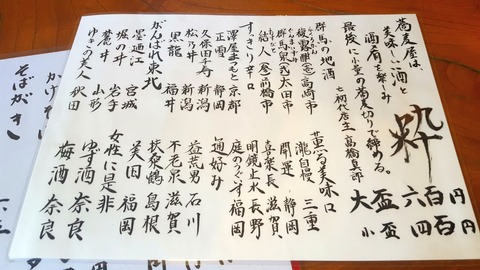 蕎麦屋は、
美味しい酒と
酒肴を楽しみ
最後に小量の蕎麦切りで締める。
七初代店主 高橋
粋
大盃 六百円
小盃 四百円
群馬の地酒
復露雅(本)高崎市
群馬泉(民)太田市
結人(参)前橋市
すっきり辛口
澤屋まつもと 京都
正雪 静岡
久保田千寿 新潟
松乃井 新潟
黒龍 福井
がんばれ東北
墨廼江 宮城
堀の井 岩手
麓井 山形
ゆきの美人 秋田
薫る美味口
瀧自慢 三重
開運 静岡
喜楽長 滋賀
明鏡止水 長野
庭のうぐいす 福岡
通好み
益荒男 石川
不老泉 滋賀
扶桑鶴 島根
美田 福岡
女性に是非
ゆず酒 奈良
梅酒 奈良
かけそば
そばがき